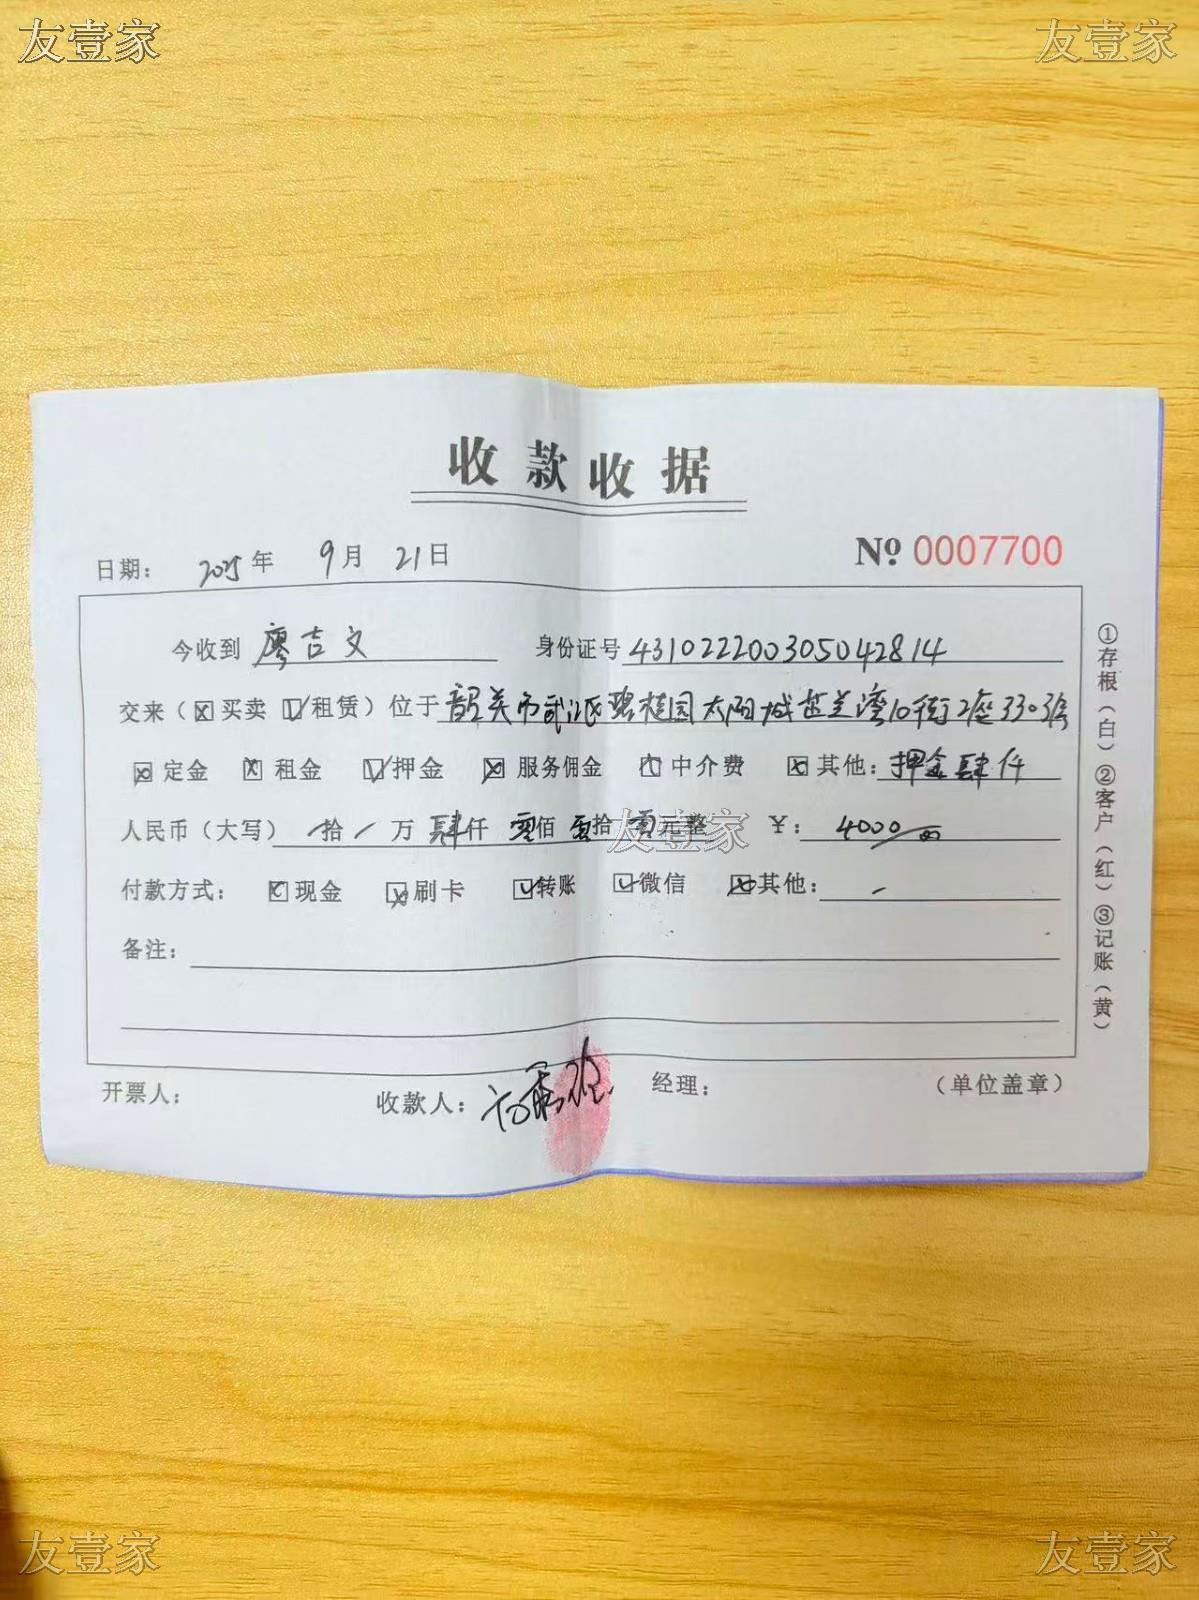 友壹家 友壹家
收款收据
日期： 2025年 9月 21日 № 0007700
今收到 廖吉文 身份证号 431022200305042814
交来（☒买卖 ☑租赁）位于 韶关市武江区碧桂园太阳城芷兰湾10街2座3303号
☒定金 ☒租金 ☑押金 ☒服务佣金 中介费 ☒其他：押金肆仟
人民币（大写） 拾 万 肆仟 零佰 零拾 零元整 ￥： 4000
友壹家
付款方式： 现金 ☒刷卡 ☑转账 ☑微信 ☒其他：
备注：
开票人： 收款人： 经理： （单位盖章）
①存根（白）②客户（红）③记账（黄）
友壹家 友壹家